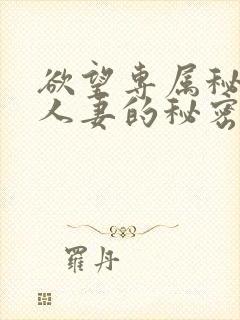 欲望专属秘
人妻的秘密
羅丹